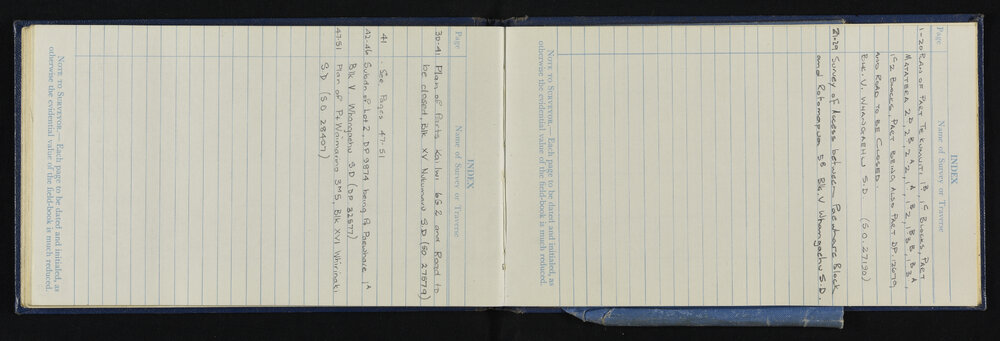 INDEX
Page Name of Survey or Traverse
1-20 PLAN OF PART TE KUMUITI 1B, 1C BLOCKS, PART
MATATERA 2D, 2B, 2A2, 1A, 1B2, 1B3B, 1B3A,
1C2 BLOCKS, PART BEING ALSO PART DP. 12679
AND ROAD TO BE CLOSED.
BLK. V. WHANGAEHU S.D (S.O. 27190)
21-29 Survey of Access between Paewhare Block
and Rotomapua 5B Blk. V Whangaehu S.D.
NOTE TO SURVEYOR.— Each page to be dated and initialed, as
otherwise the evidential value of the field-book is much reduced.
INDEX
Page Name of Survey or Traverse
30-41 Plan of Parts Kai Iwi 6G2 and Road to
be closed, Blk XV Nukumaru S.D (SO 27879)
41 See Pages 47-51
42-46 Subdn of Lot 2, DP 9874 being Pt Paewhare 1A
Blk V Whangaehu S.D (DP 32877)
47-51 Plan of Pt Waimarino 3M5, Blk XVI Whirinaki
S.D (SO 28407)
NOTE TO SURVEYOR.— Each page to be dated and initialed, as
otherwise the evidential value of the field-book is much reduced.